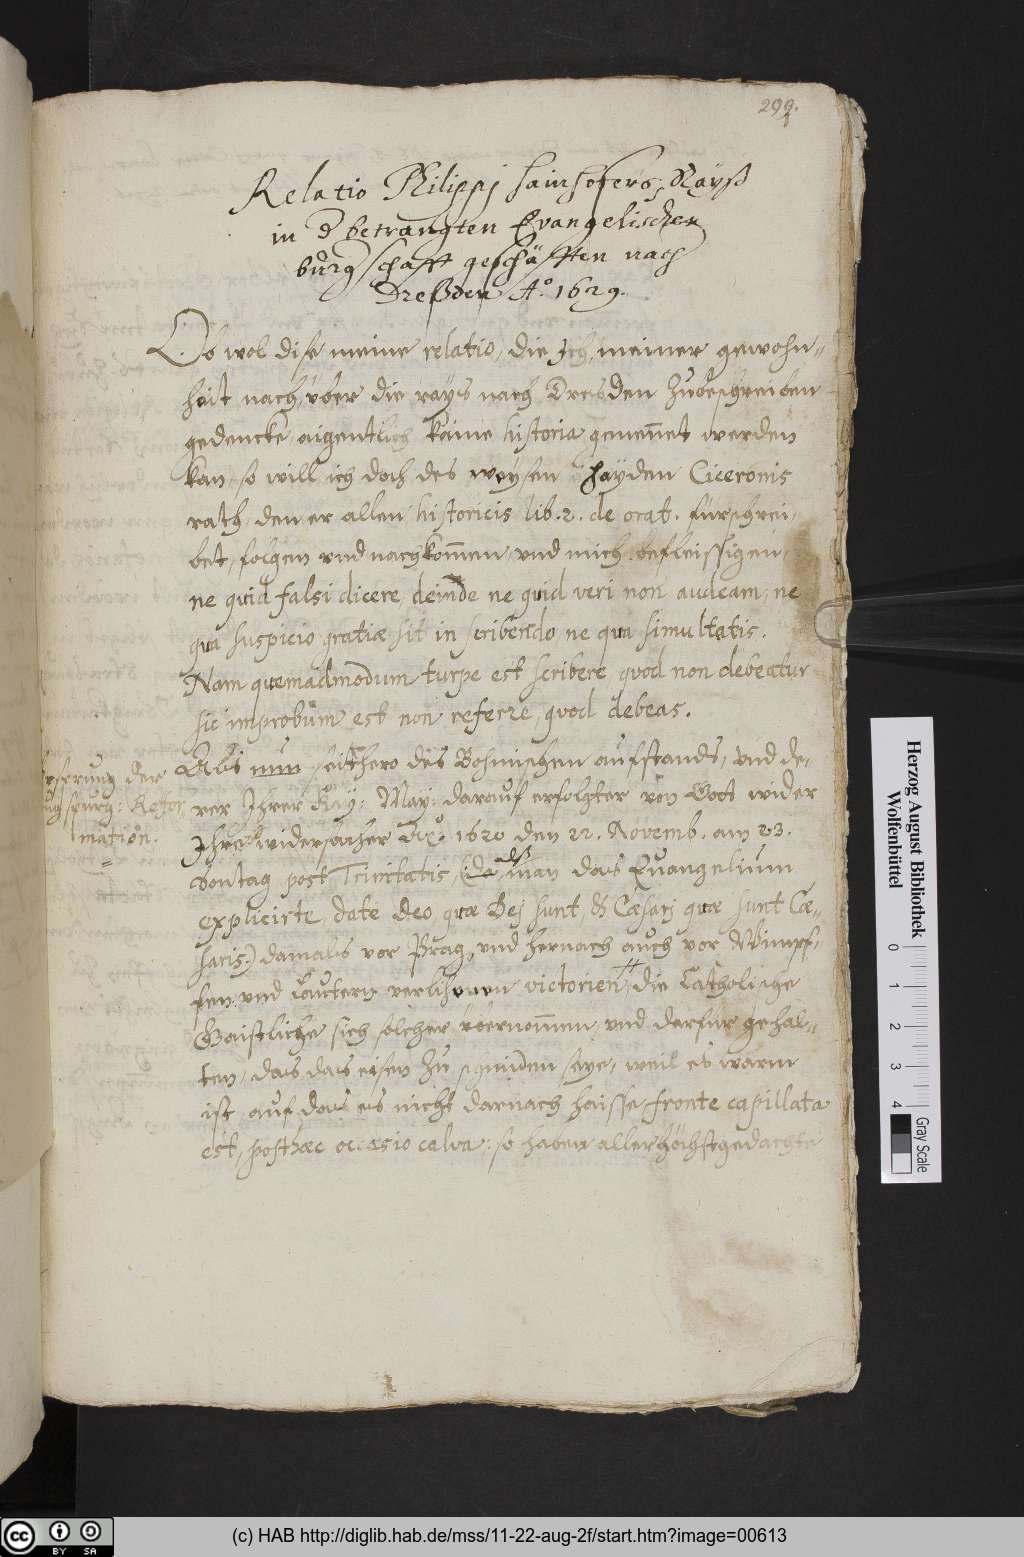 299.
Relatio Philippj Hainhofers, Rayß
in d betrangten Evangelischen
burgschafft geschäfften nach
Dreßden Aº. 1629.
Ob wol dise meine relatio, die Ich, meiner gewohn-
hait nach, vber die rays nach Dresden zubeschreiben
gedencke, aigentlich kaine historia genennet werden
kan, so will ich doch des weysen hayden Ciceronis
rath, den er allen historicis lib. 2. de orat. fürschrei-
bet, folgen vnd nachkommen, vnd mich befleissigen,
ne quid falsi dicere, deinde ne quid veri non audeam, ne
qua suspicio gratiæ sit in scribendo, ne qua simultatis.
Nam quemadmodum turpe est scribere, quod non debeatur
sic improbum est non referre, quod debeas.
der
spurg: Refor
mation.
Als nun seithero des Bohmischen aufstands, vnd de-
rer Ihrer Kay: May: darauf erfolgter von Gott wider
Ihre widersacher Aº. 1620 den 22. Novemb. am 23.
Sontag post Trinitatis, (da man das Evangelium
alß
explicirte, date deo, quæ Dej sunt, & Cæsarj quæ sunt Cæ-
saris:) damals vor Prag, vnd hernach auch vor Wimpf-
fen, vnd Lautern verlihenen victorien, die Catholische
Gaistliche sich solcher vbernommen, vnd darfür gehal-
ten, das das eisen zu schmiden seye, weil es warm
ist, auf das es nicht darnach haisse, fronte capillata
est, posthæc occasio calva: so haben allerhöchstgedachte
Herzog August Bibliothek
Wolfenbüttel
0 1 2 3 4
Gray Scale
cc BY SA
(c) HAB http://diglib.hab.de/mss/11-22-aug-2f/start.htm?image=00613